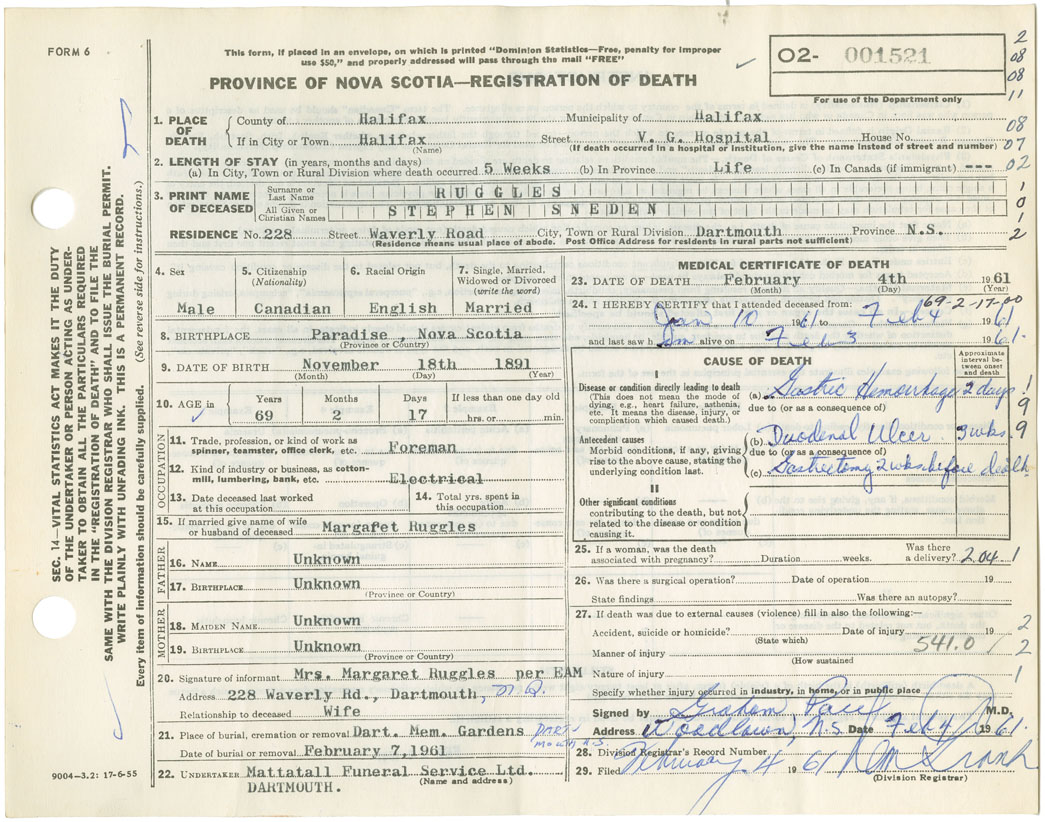 FORM 6
This form, if placed in an envelope, on which is printed "Dominion Statistics—Free, penalty for improper
use $50," and properly addressed will pass through the mail "FREE"
PROVINCE OF NOVA SCOTIA—REGISTRATION OF DEATH
02- 001521
For use of the Department only
2
08
08
11
08
07
02
1
0
1
2
1. PLACE OF DEATH
County of Halifax Municipality of Halifax
If in City or Town Halifax Street V. G. Hospital House No.
(Name) (If death occurred in a hospital or institution, give the name instead of street and number)
2. LENGTH OF STAY (in years, months and days)
(a) In City, Town or Rural Division where death occurred 5 Weeks (b) In Province Life (c) In Canada (if immigrant) ---
3. PRINT NAME OF DECEASED
Surname or Last Name RUGGLES
All Given or Christian Names STEPHEN SNEDEN
RESIDENCE No. 228 Street Waverly Road City, Town or Rural Division Dartmouth Province N.S.
(Residence means usual place of abode. Post Office Address for residents in rural parts not sufficient)
4. Sex
Male
5. Citizenship
(Nationality)
Canadian
6. Racial Origin
English
7. Single, Married,
Widowed or Divorced
(write the word)
Married
8. BIRTHPLACE Paradise, Nova Scotia
(Province or Country)
9. DATE OF BIRTH November 18th 1891
(Month) (Day) (Year)
10. AGE in
Years Months Days If less than one day old
69 2 17 hrs. or min.
OCCUPATION
11. Trade, profession, or kind of work as
spinner, teamster, office clerk, etc. Foreman
12. Kind of industry or business, as cotton-
mill, lumbering, bank, etc. Electrical
13. Date deceased last worked
at this occupation
14. Total yrs. spent in
this occupation
15. If married give name of wife
or husband of deceased Margaret Ruggles
FATHER
16. NAME Unknown
17. BIRTHPLACE Unknown
(Province or Country)
MOTHER
18. MAIDEN NAME Unknown
19. BIRTHPLACE Unknown
(Province or Country)
20. Signature of informant Mrs. Margaret Ruggles per EAM
Address 228 Waverly Rd., Dartmouth,
Relationship to deceased Wife
21. Place of burial, cremation or removal Dart. Mem. Gardens
Date of burial or removal February 7,1961
22. UNDERTAKER Mattatall Funeral Service Ltd.
(Name and address)
DARTMOUTH.
MEDICAL CERTIFICATE OF DEATH
23. DATE OF DEATH February 4th 1961
(Month) (Day) (Year)
24. I HEREBY CERTIFY that I attended deceased from: 69-2-17-00
Jan 10 1961 to Feb 4 1961
and last saw him alive on Feb 3 1961.
CAUSE OF DEATH
Approximate
interval be-
tween onset
and death
I
Disease or condition directly leading to death
(This does not mean the mode of
dying, e.g., heart failure, asthenia,
etc. It means the disease, injury, or
complication which caused death.)
(a) Gastric Hemorrhage 2 days
due to (or as a consequence of)
Antecedent causes
Morbid conditions, if any, giving
rise to the above cause, stating the
underlying condition last.
(b) Duodenal Ulcer. 3 wks.
due to (or as a consequence of)
(c) Gastrectomy 2 wks before death
II
Other significant conditions
contributing to the death, but not
related to the disease or condition
causing it.
1
9
9
25. If a woman, was the death
associated with pregnancy? Duration weeks. Was there
a delivery? 204.1
26. Was there a surgical operation? Date of operation 19
State findings Was there an autopsy?
27. If death was due to external causes (violence) fill in also the following:—
Accident, suicide or homicide? Date of injury 19 2
(State which)
Manner of injury 541.0 1 2
(How sustained
Nature of injury 1
Specify whether injury occurred in industry, in home, or in public place
Signed by Graham M.D.
Address Woodlawn, N.S. Date Feb 4 1961.
28. Division Registrar's Record Number
29. Filed February 4 1961
(Division Registrar)
SEC. 14—VITAL STATISTICS ACT MAKES IT THE DUTY
OF THE UNDERTAKER OR PERSON ACTING AS UNDER-
TAKER TO OBTAIN ALL THE PARTICULARS REQUIRED
IN THE "REGISTRATION OF DEATH" AND TO FILE THE
SAME WITH THE DIVISION REGISTRAR WHO SHALL ISSUE THE BURIAL PERMIT.
WRITE PLAINLY WITH UNFADING INK. THIS IS A PERMANENT RECORD.
Every item of information should be carefully supplied. (See reverse side for instructions.)
9004—3.2: 17-6-55